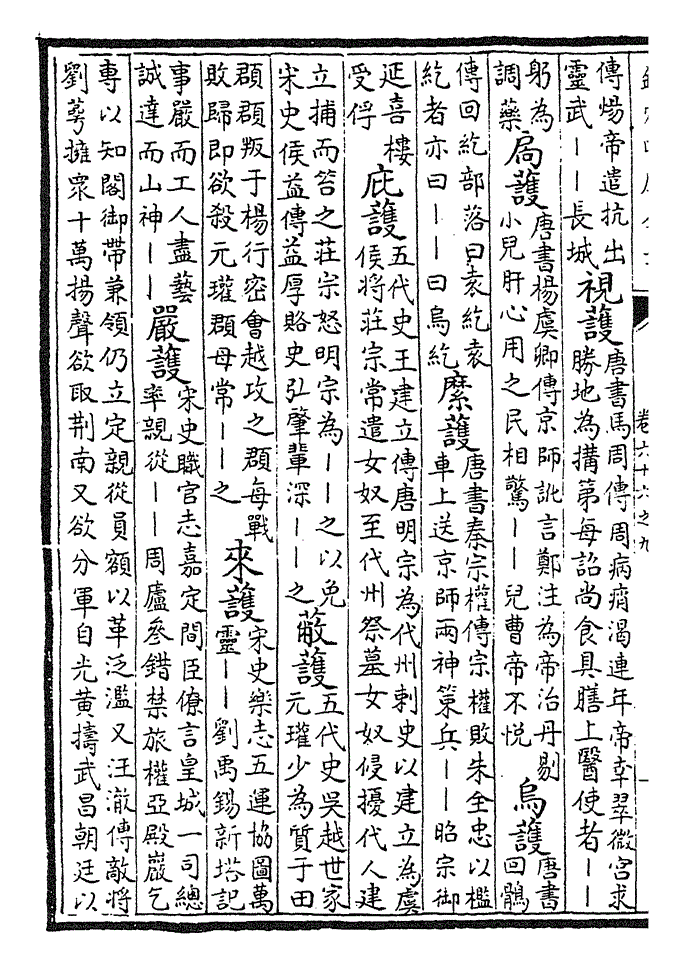 卷六十六之九
傳煬帝遣抗出
靈武——長城
視護
唐書馬周傳周病痟渴連年帝幸翠微宮求
勝地為搆第每詔尚食具膳上醫使者——
躬為
調藥
局護
唐書楊虞卿傳京師訛言鄭注為帝治丹剔
小兒肝心用之民相驚——兒曹帝不悦
烏護
唐書
回鶻
傳回紇部落曰袁紇袁
紇者亦曰——曰烏紇
縻護
唐書秦宗權傳宗權敗朱全忠以檻
車上送京師兩神策兵——昭宗御
延喜樓
受俘
庇護
五代史王建立傳唐明宗為代州刺史以建立為虞
候將莊宗常遣女奴至代州祭墓女奴侵擾代人建
立捕而笞之莊宗怒明宗為——之以免
宋史侯益傳益厚賂史弘肇輩深——之
蔽護
五代史吳越世家
元瓘少為質于田
頵頵叛于楊行密會越攻之頵每戰
敗歸即欲殺元瓘頵母常——之
來護
宋史樂志五運協圖萬
靈——劉禹錫新塔記
事嚴而工人盡藝
誠達而山神——
嚴護
宋史職官志嘉定間臣僚言皇城一司總
率親從——周廬參錯禁旅權亞殿巖乞
專以知閣御帶兼領仍立定親從員額以革泛濫又汪澈傳敵將
劉萼擁衆十萬揚聲欲取荆南又欲分軍自光黄擣武昌朝廷以